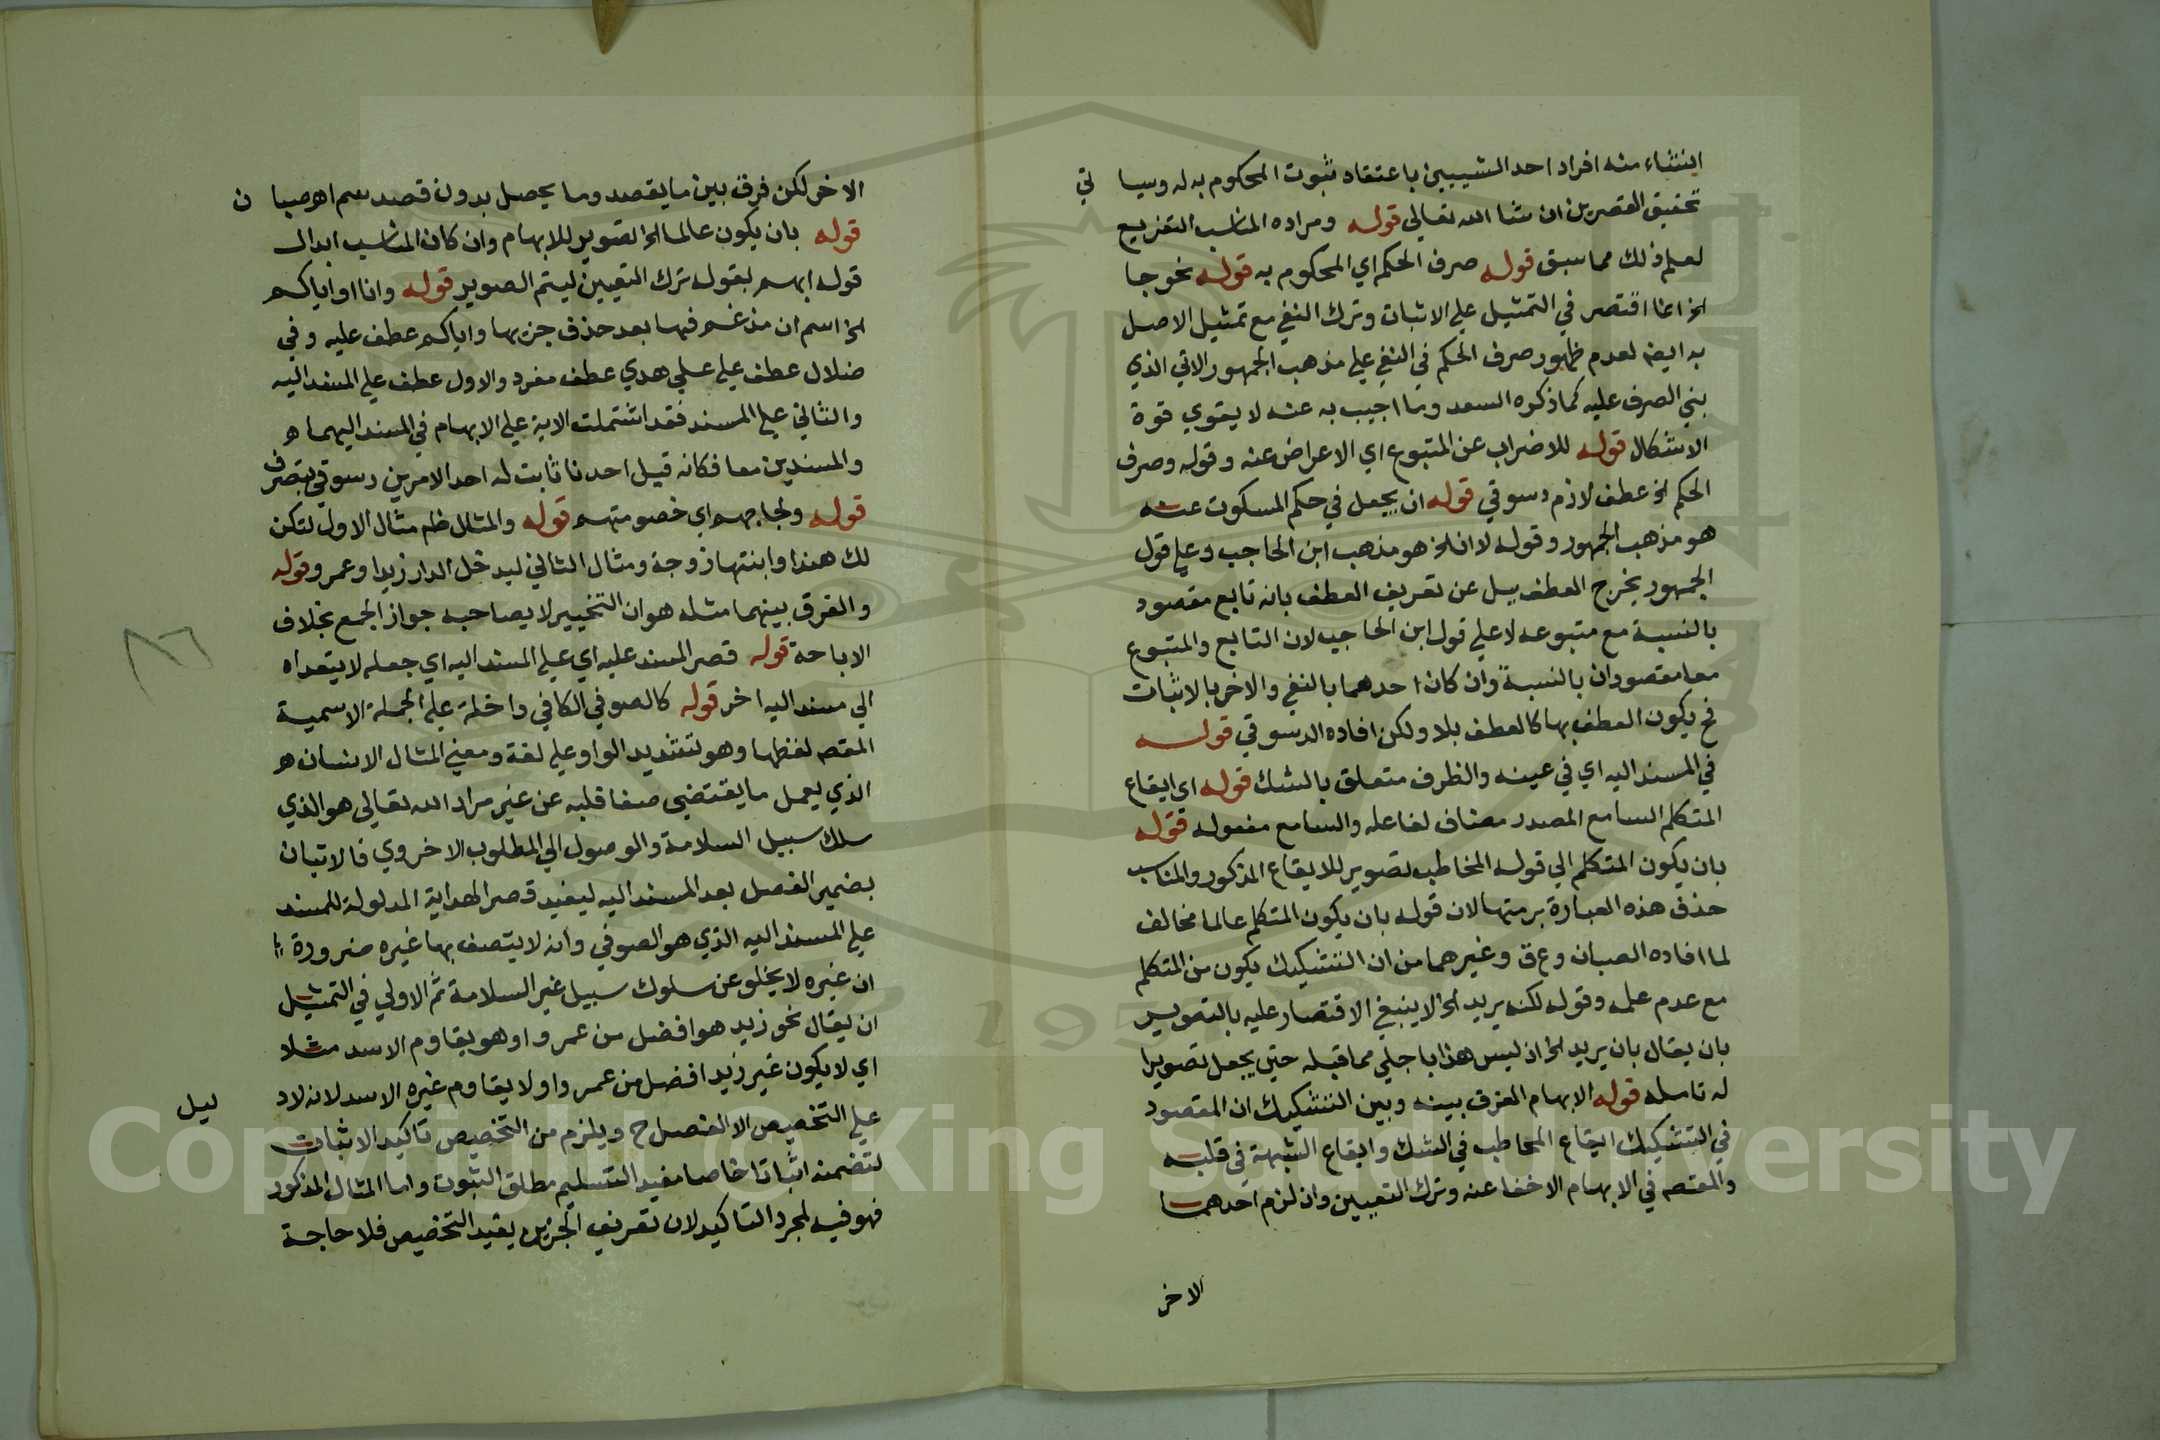 استثناء منه افراد احد الشيبين باعتقاد ثبوت المحكوم به له وسيا تي
تحقيق القصرين ان شا الله تعالى قوله ومراده المناسب التفريع
لعلم ذلك مما سبق قوله صرف الحكم اي المحكوم به قوله نحو جا
الخ انما اقتصر في التمثيل علي الاثبات وترك النفي مع تمثيل الاصل
به ايضا لعدم ظهور صرف الحكم في النفي علي مذهب الجمهور الاتي الذي
بني الصرف عليه كما ذكره السعد وما اجيب به عنه لا يقوي قوة
الاشكال قوله للاضراب عن المتبوع اي الاعراض عنه وقوله وصرف
الحكم الخ عطف لازم دسوقي قوله ان يجعل في حكم المسكوت عنه
هو مذهب الجمهور وقوله لا ان الخ هو مذهب ابن الحاجب وعلي قول
الجمهور يخرج العطف ببل عن تعريف العطف بانه تابع مقصود
بالنسبة مع متبوعه لا علي قول ابن الحاجب لان التابع والمتبوع
معا مقصودان بالنسبة وان كان احدهما بالنفي والاخر بالاثبات
فح يكون العطف بها كالعطف بلا ولكن افاده الدسوقي قوله
في المسند اليه اي في عينه والظرف متعلق بالشك قوله اي ايقاع
المتكلم السامع المصدر مضاف لفاعله والسامع مفعوله قوله
بان يكون المتكلم الي قوله المخاطب تصوير للايقاع المذكور والمناسب
حذف هذه العبارة برمتها لان قوله بان يكون المتكلم عالما مخالف
لما افاده الصبان وع ق وغيرهما من ان التشكيك يكون من المتكلم
مع عدم علمه وقوله لكنه يريد الخ لا ينبغي الاقتصار عليه بالتصوير
بان يقال بان يريد الخ اذ ليس هذا باجلي مما قبله حتي يجعل تصويرا
له تامله قوله الابهام الفرق بينه وبين التشكيك ان المقصود
في التشكيك ايقاع المخاطب في الشك وايقاع الشبهة في قلبه
والمقصم في الابهام الاخفا عنه وترك التعيين وان لزم احدهما
الاخر
الاخر لكن فرق بين ما يقصد وما يحصل بدون قصد سم اهـ صبا ن
قوله بان يكون عالما الخ تصوير للابهام وان كان المناسب ابدال
قوله ابهم بقوله ترك التعيين ليتم الصوير قوله وانا او اياكم
الخ اسم ان مدغم فيها بعد حذف جزءها واياكم عطف عليه وفي
ضلال عطف علي علي هدي عطف مفرد والاول عطف علي المسند اليه
والثاني علي المسند فقد اشتملت الاية علي الابهام في المسند اليهما هـ
والمسندين معا فكانه قيل احدنا ثابت له احد الامرين دسوقي بتصرف
قوله ولجاجهم اي خصومتهم قوله والمثال ظم مثال الاول لتكن
لك هندا وابنتها زوجة ومثال الثاني ليدخل الدار زيدا وعمرو قوله
والفرق بينهما مثله هو ان التخيير لا يصاحبه جواز الجمع بخلاف
الاباحة قوله قصر المسند عليه اي علي المسند اليه اي جعله لا يتعداه
الي مسند اليه اخر قوله كالصوفي الكافي داخلة علي الجملة الاسمية
المقصم لفظها وهو بتشديد الواو علي لغة ومعني المثال الانسان هـ
الذي يعمل ما يقتضي صفا قلبه عن غير مراد الله تعالى هو الذي
سلك سبيل السلامة والوصول الي المطلوب الاخروي فالاتيان
بضمير الفصل بعد المسند اليه ليفيد قصر الهداية المدلولة للمسند
علي المسند اليه الذي هو الصوفي وانه لا يتصف بها غيره ضرورة
ان غيره لا يخلو عن سلوك سبيل غير السلامة ثم الاولي في التمثيل
ان يقال نحو زيد هو افضل من عمرو او هو يقاوم الاسد مثلا
اي لا يكون غير زيد افضل من عمرو او لا يقاوم غيره الاسد لانه لا د ليل
علي التخصيص الا الفصل ح ويلزم من التخصيص تاكيد الاثبات
لتضمنه اثباتا خاصا مفيد التسليم مطلق الثبوت واما المثال المذكور
فهو فيه لمجرد التاكيد لان تعريف الجزين يفيد التخصيص فلا حاجة
٨٦
1957
Copyright © King Saud University